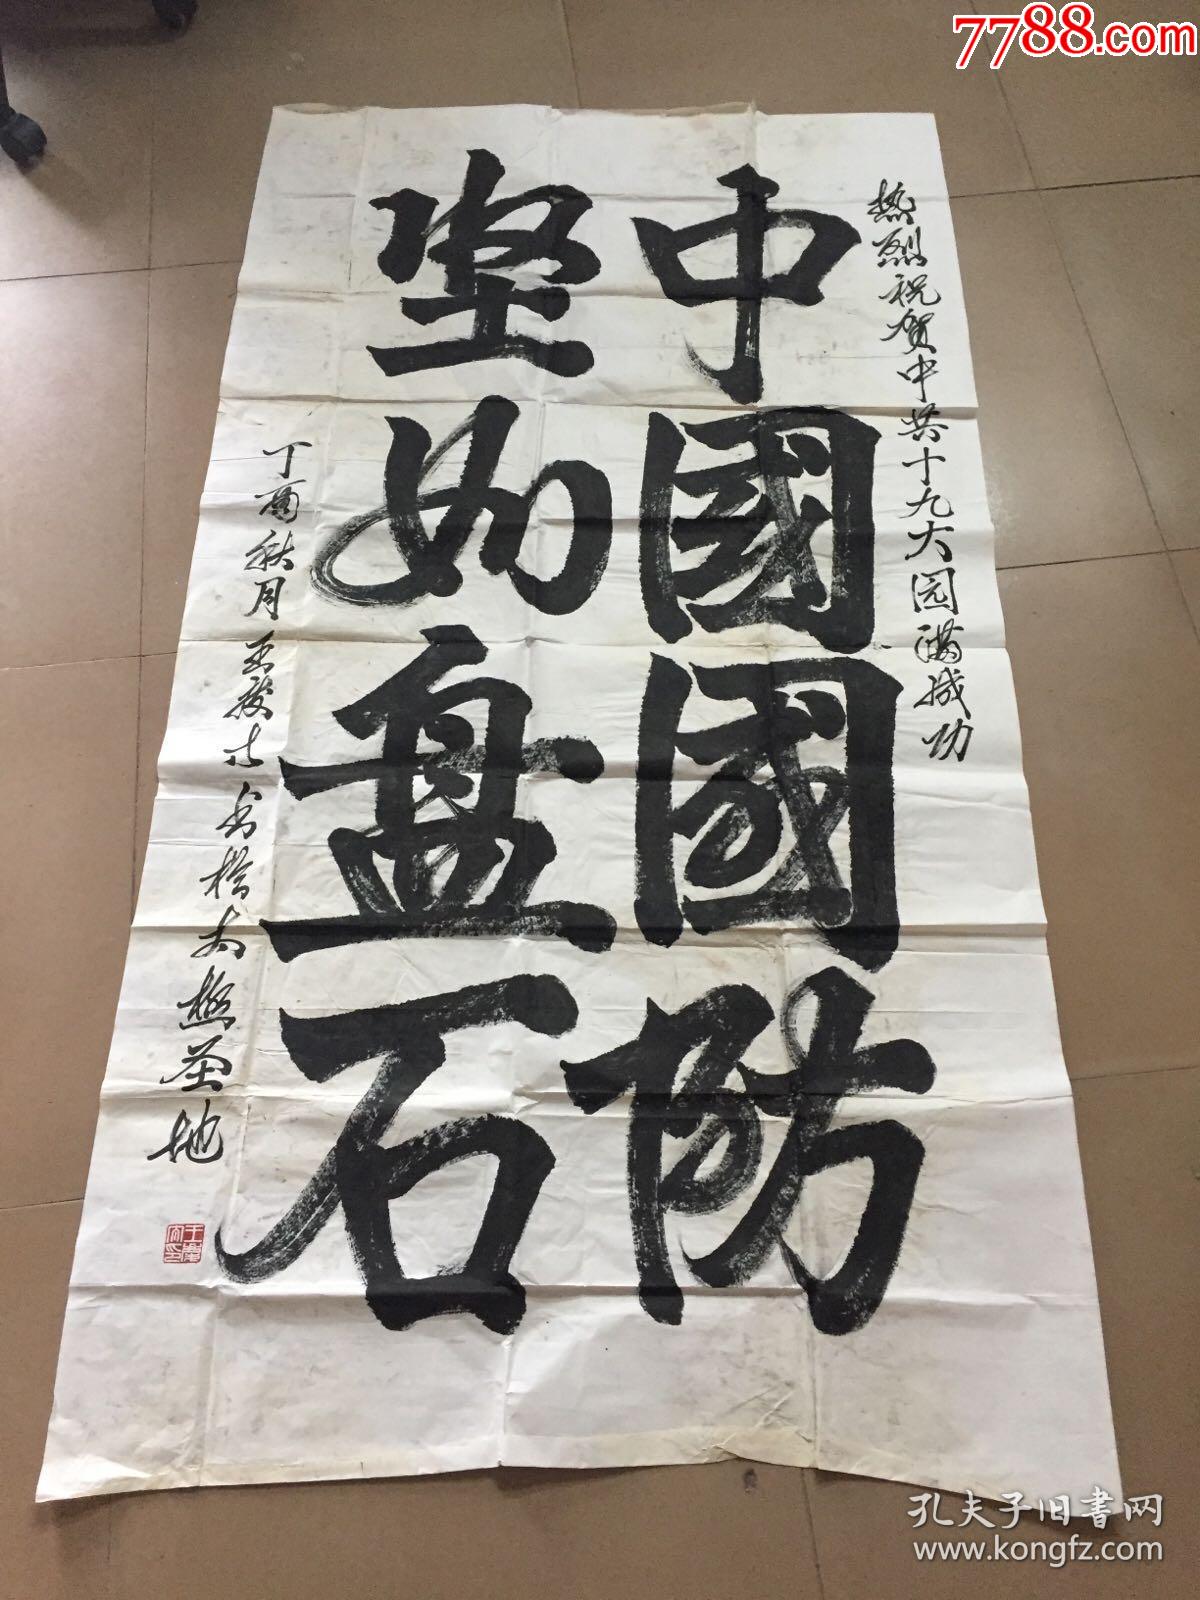 7788.com
热烈祝贺中共十九大园满成功
中國國防
坚如盘石
丁酉秋月王 书於太极圣地
孔夫子旧书网
www.kongfz.com